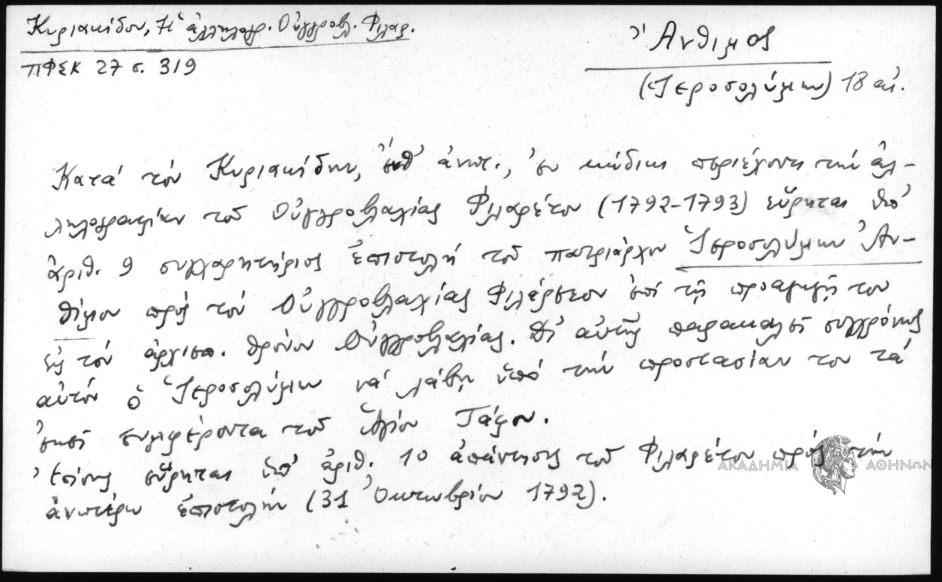 Κυριακίδου, Ἡ ἀλληλογρ. Οὑγγροβλ. Φιλαρ.
ΠΦΣΚ 27 σ. 319
Ἄνθιμος
(Ἱεροσολύμων) 18 αἰ.
Κατά τόν Κυριακίδην, ἔνθ' ἀνωτ., ἐν κώδικι περιέχοντι τήν ἀλ-
ληλογραφίαν τοῦ Οὑγγροβλαχίας Φιλαρέτου (1792-1793) εὕρηται ὑπ'
ἀριθ. 9 συγχαρητήριος ἐπιστολή τοῦ πατριάρχου Ἱεροσολύμων Ἀν-
θίμου πρός τόν Οὑγγροβλαχίας Φιλάρετον ἐπί τῇ προαγωγῇ του
εἰς τόν ἀρχιεπ. θρόνον Οὑγγροβλαχίας. Δι' αὐτῆς παρακαλεῖ συγχρόνως
αὐτόν ὁ Ἱεροσολύμων νά λάβῃ ὑπό τήν προστασίαν του τά
ἐκεῖ συμφέροντα τοῦ Ἁγίου Τάφου.
Ἐπίσης εὕρηται ὑπ' ἀριθ. 10 ἀπάντησις τοῦ Φιλαρέτου πρός τήν
ἀνωτέρω ἐπιστολήν (31 Ὀκτωβρίου 1792).
ΑΚΑΔΗΜΙΑ ΑΘΗΝΩΝ